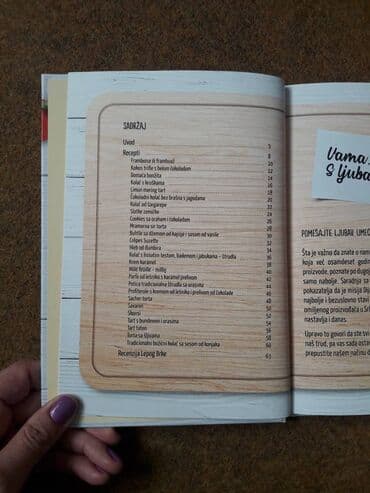 SADRŽAJ
Uvod 5
Recepti 8
Framboise (i frambuaz) 10
Kokos trifle s belom čokoladom 12
Domaća bonžita 14
Kolač s kruškama 16
Limun mereng tart 18
Čokoladni kolač bez brašna s jagodama 20
Kolač od šargarepe 22
Slatke zemičke 24
Cookies sa orahom i čokoladom 26
Mramorna torta 28
Buhtle sa džemom od kajsije i sosom od vanile 30
Crêpes Suzette 32
Hleb od đumbira 34
Kolač s lisnatim testom, bademom i jabukama – štrudla 36
Krem karamel 38
Mille feuille – milfej 40
Parfe od lešnika s karamel prelivom 42
Potica tradicionalna štrudla sa orasima 44
Profiterole s kremom od lešnika i prelivom od čokolade 46
Sacher torta 48
Savaren 50
Skonsi 52
Tart s bundevom i orasima 54
Tart taten 56
Torta sa šljivama 58
Tradicionalni božićni kolač sa sosom od konjaka 60
Recenzija Lepog Brke 63
Vama
S ljuba
POMEŠAJTE LJUBAV, UMEĆ
Šta je važno da znate o nam
koja već osamdeset godi
proizvode, poznate po dugoj
samo nabolje. Saradnja sa
pokazatelja da je misija
najbolje i bezuslovno stavi
omiljenog proizvođača u Srb
nastavlja i danas.
Upravo to govori da ste svi
naš trud, pa vas sada osta
prepustite našem načinu